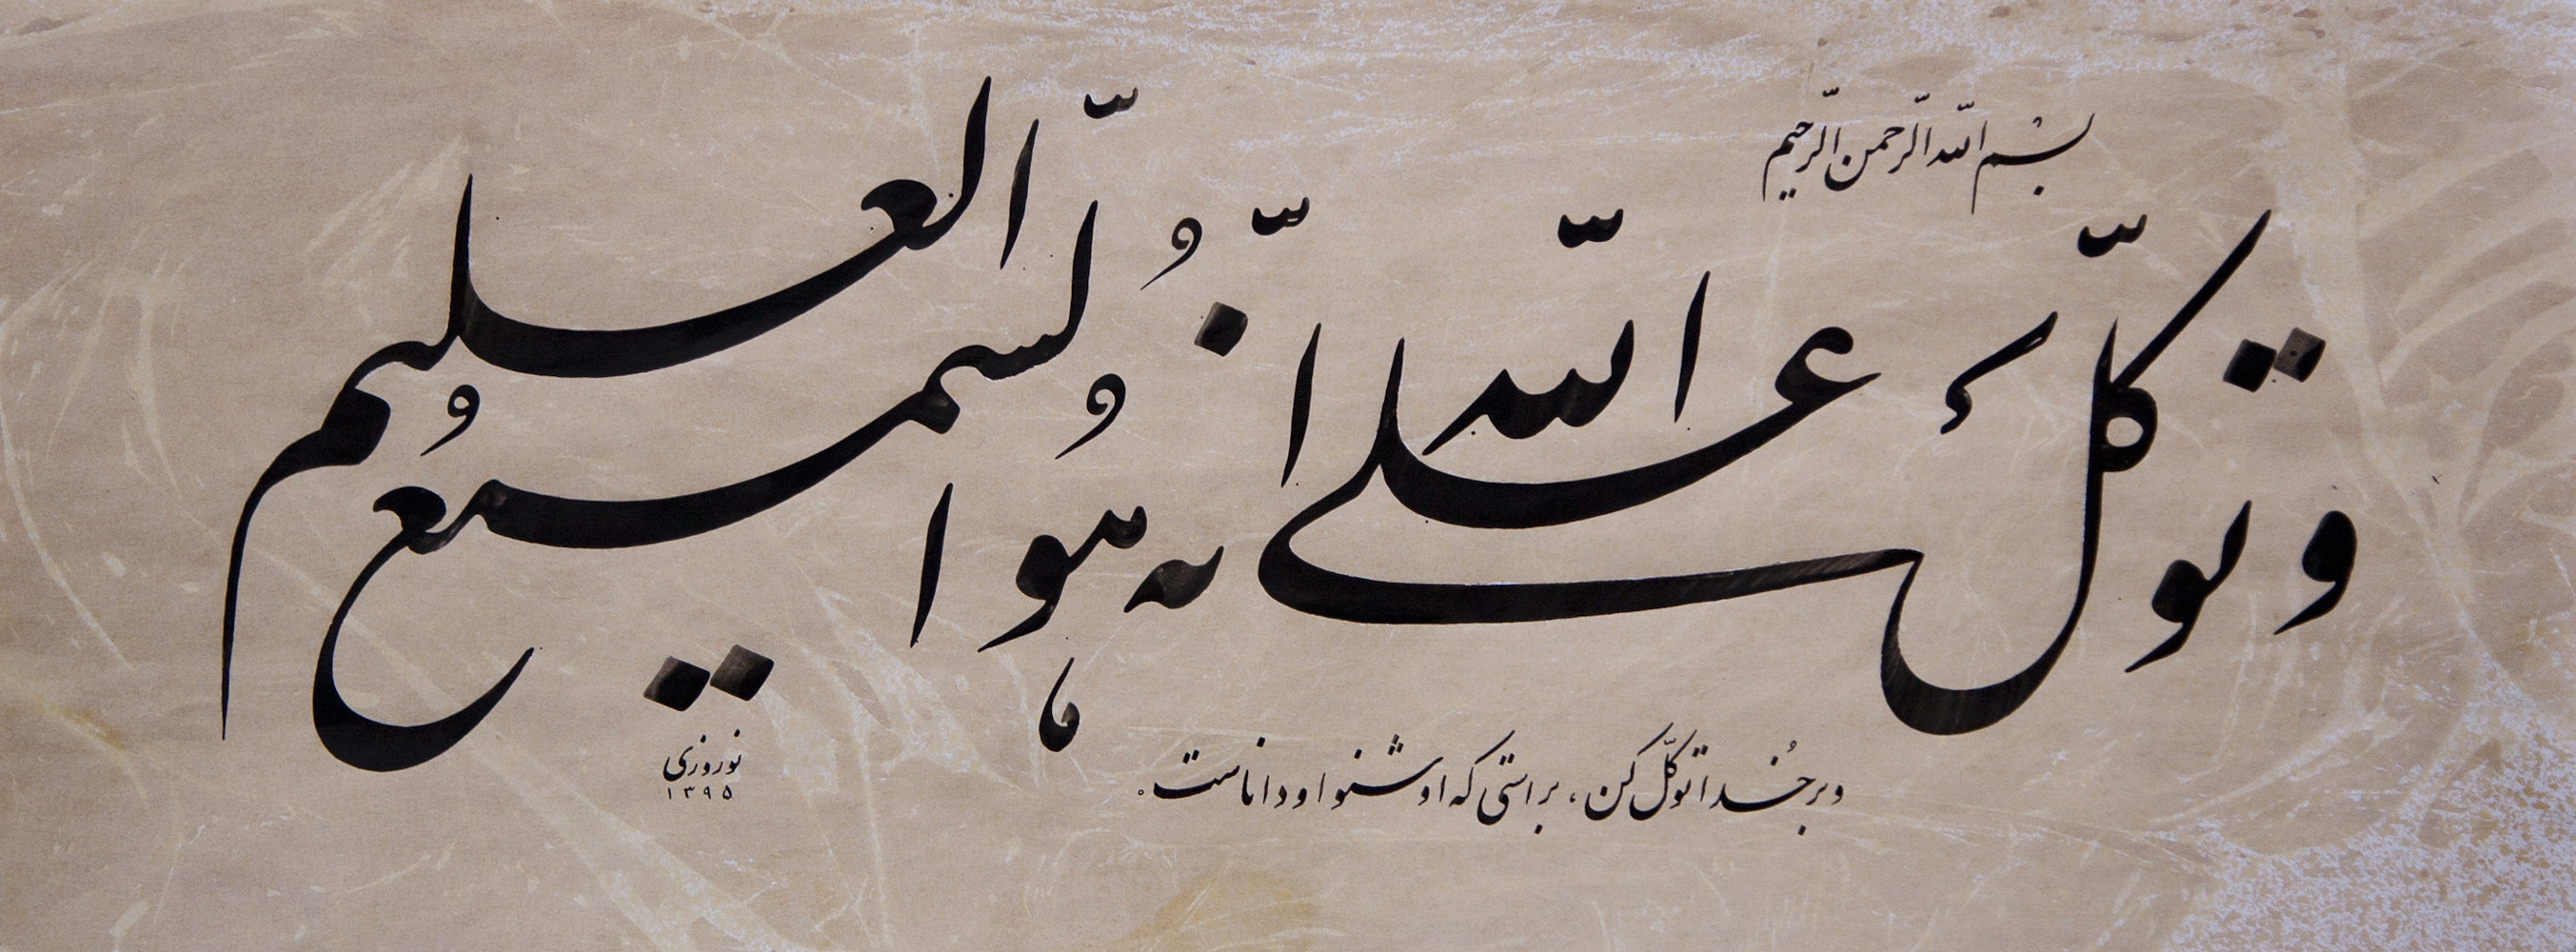 بسم الله الرّحمن الرّحیم
وتوکّل علی اللّه انّه هو السّمیع العلیم
و بر خُدا توکّل کن، براستی که او شنوا و دانا ست.
نوروزی
۱۳۹۵